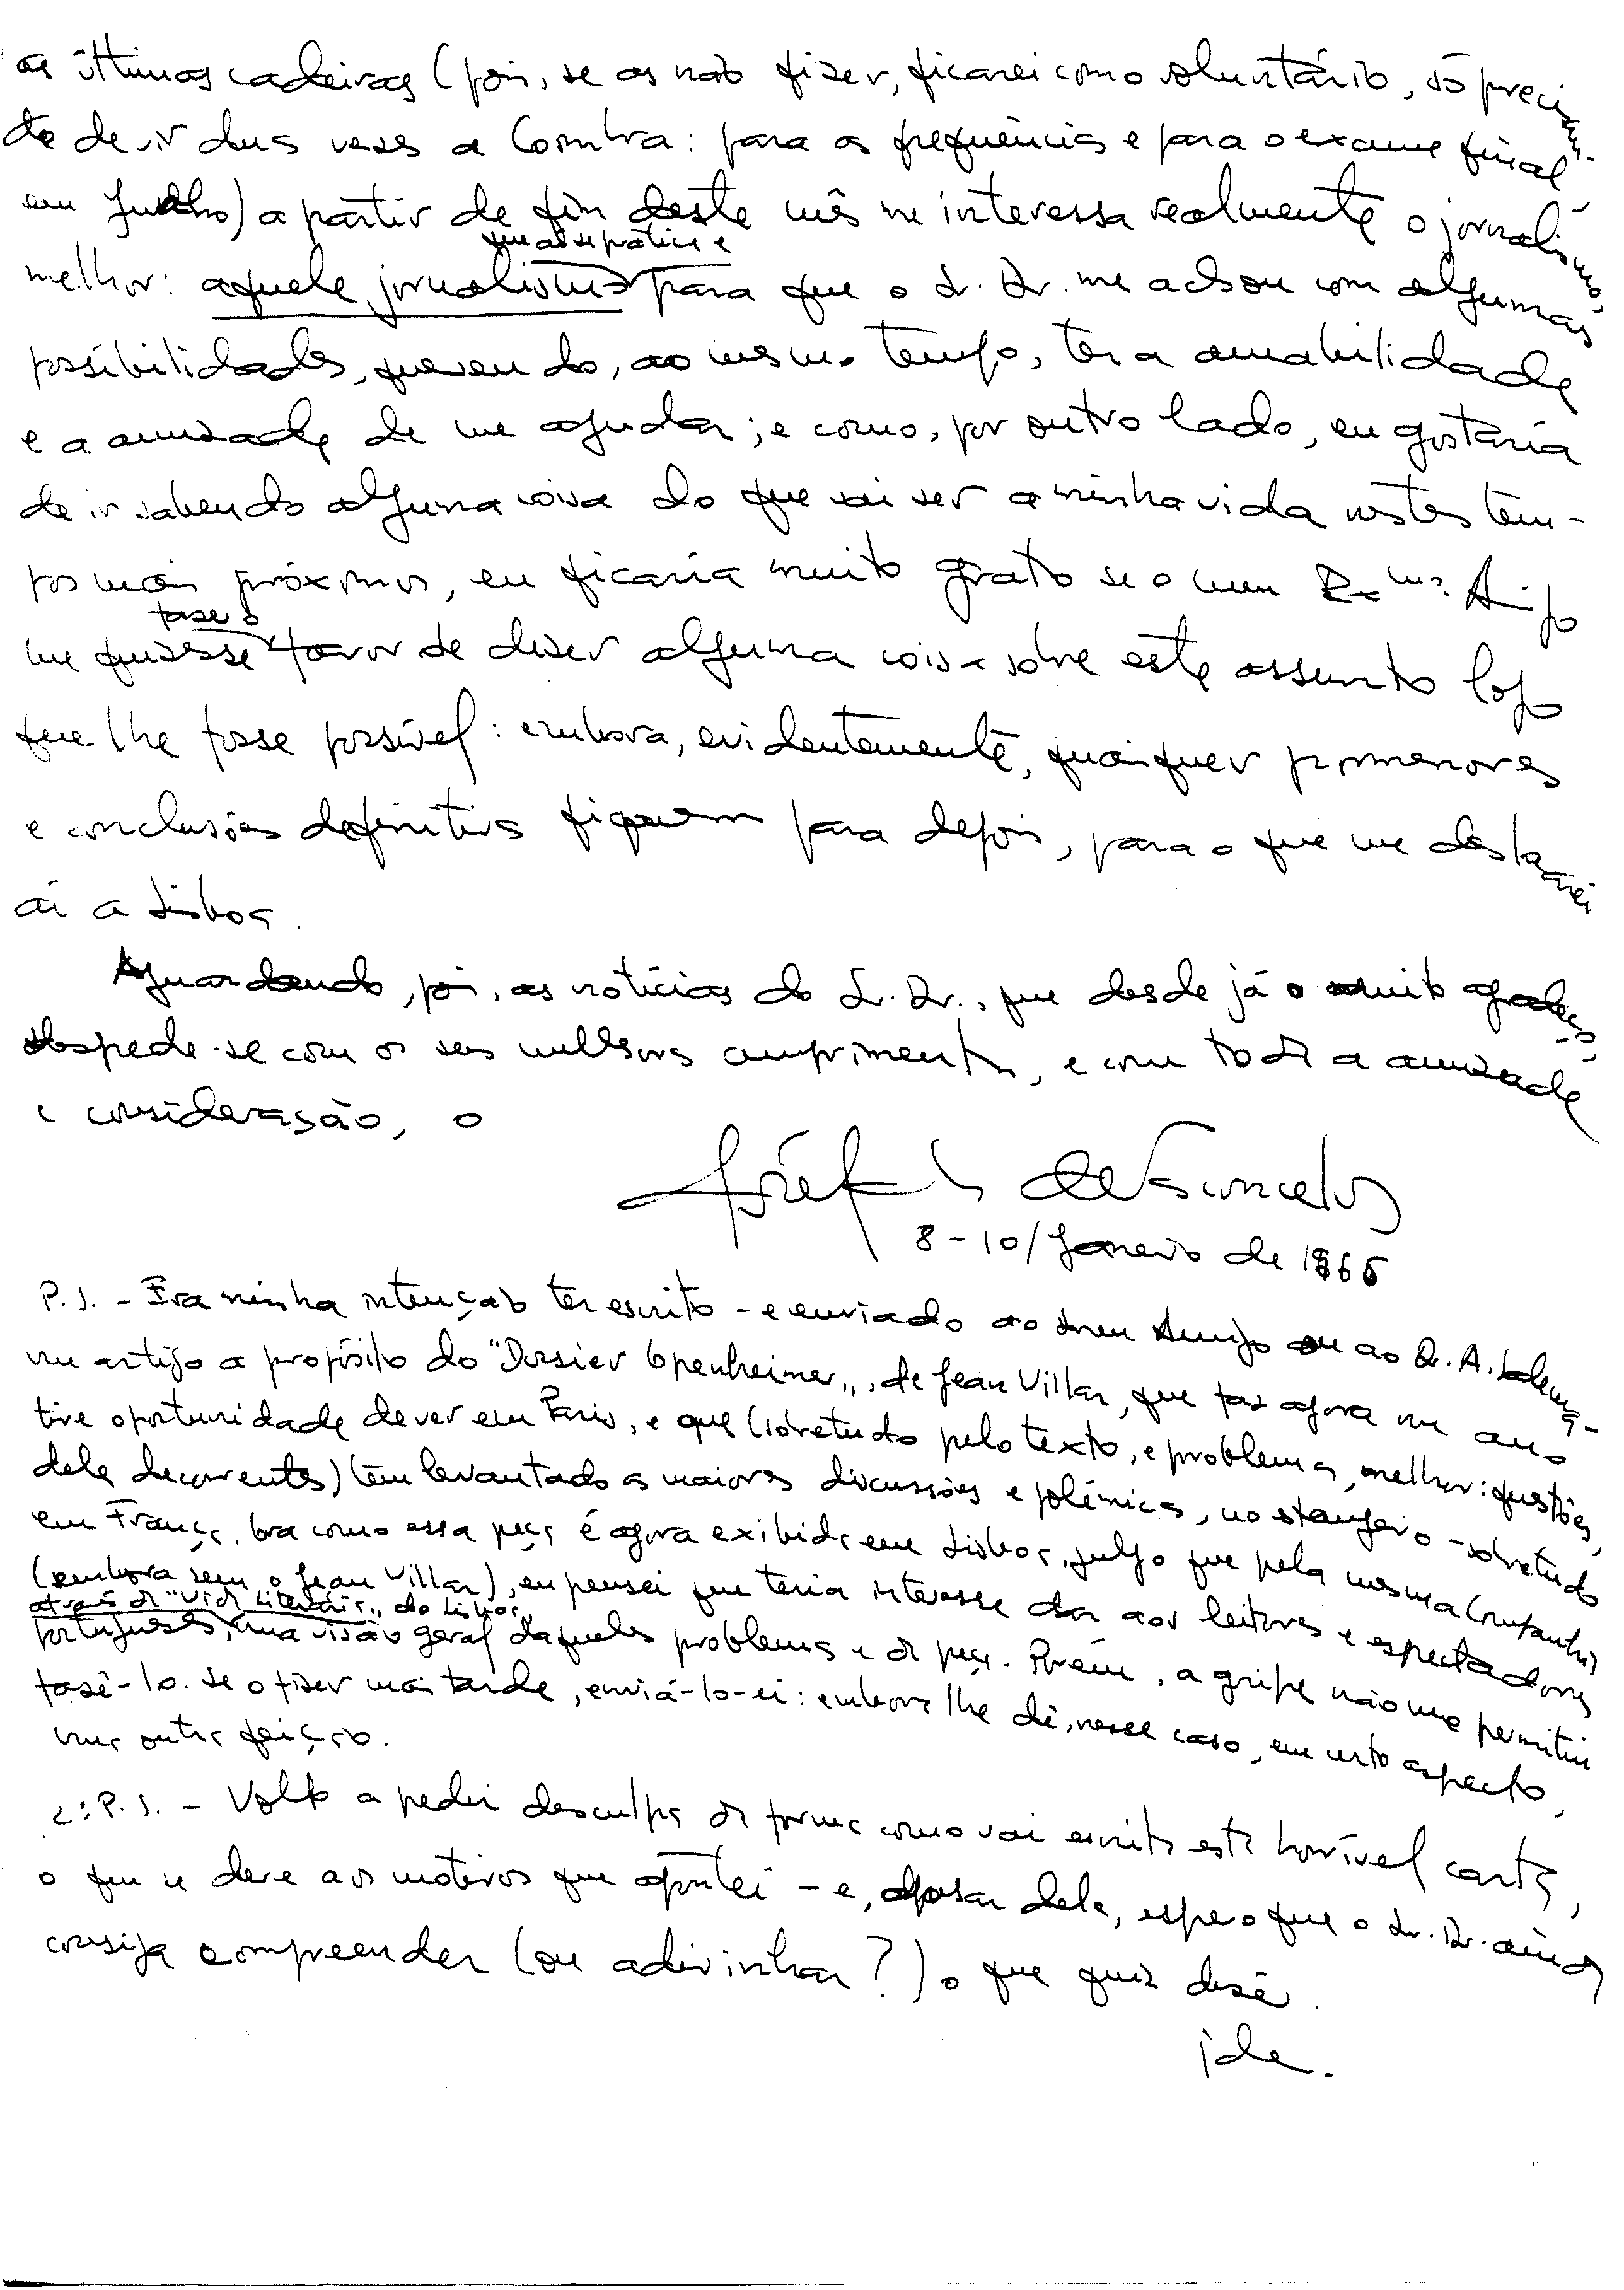 as últimas cadeiras (pois, se as não fizer, ficarei como voluntário, só precisan-
do de ir duas vezes a Coimbra: para as frequências e para o exame final
em Julho) a partir de fim deste mês me interessa realmente o jornalismo,
que aí se pratica e
melhor: aquele jornalismo para que o Sr. Dr. me achou com algumas
possibilidades, querendo, ao mesmo tempo, ter a amabilidade
e a amizade de me ajudar; e como, por outro lado, eu gostaria
de ir sabendo alguma coisa do que vai ser a minha vida nestes tem-
pos mais próximos, eu ficaria muito grato se o meu Exmo. Amigo
fazer o
me quizesse favor de dizer alguma coisa sobre este assunto logo
que lhe fosse possível: embora, evidentemente, quaisquer pormenores
e conclusões definitivas fiquem para depois, para o que me deslocarei
aí a Lisboa.
Aguardando, pois, as notícias do Sr. Dr., que desde já muito agradece,
despede-se com os seus melhores cumprimentos, e com toda a amizade
e consideração, o
de Vasconcelos
8-10/Janeiro de 1966
P.S. - Era minha intenção ter escrito - e enviado ao meu Amigo ou ao Dr. A.
um artigo a propósito do "Dossier Openheimer", de Jean Villar, que faz agora um ano
tive oportunidade de ver em Paris, e que (sobretudo pelo texto, e problemas, melhor: questões,
dele decorrentes) têm levantado as maiores discussões e polémicas, no stangeiro - sobretudo
em França. Ora como essa peça é agora exibida em Lisboa, julgo que pela mesma Companhia
(embora sem o Jean Villar), eu pensei que teria interesse dar aos leitores e espectadores
através da "Vida Literária", do Lisboa,
portugueses, uma visão geral daqueles problemas e da peça. Porém, a gripe não me permitiu
fazê-lo. Se o fizer mais tarde, enviá-lo-ei: embora lhe dê, nesse caso, em certo aspecto,
uma outra feição.
2º P.S. - Volto a pedir desculpa da forma como vai escrita esta horrível carta,
o que se deve aos motivos que apontei - e, apesar dela, espero que o Sr. Dr. ainda
consiga compreender (ou adivinhar?) o que quiz dizer.